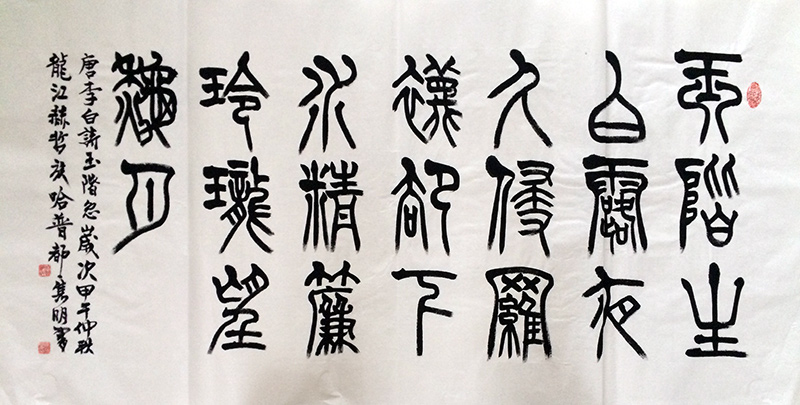 玉階生
白露夜
久侵羅
襪卻下
水精簾
玲瓏望
龝月
唐李白詩玉階怨歲次甲午仲秋
龍江赫哲族哈普都雋明書